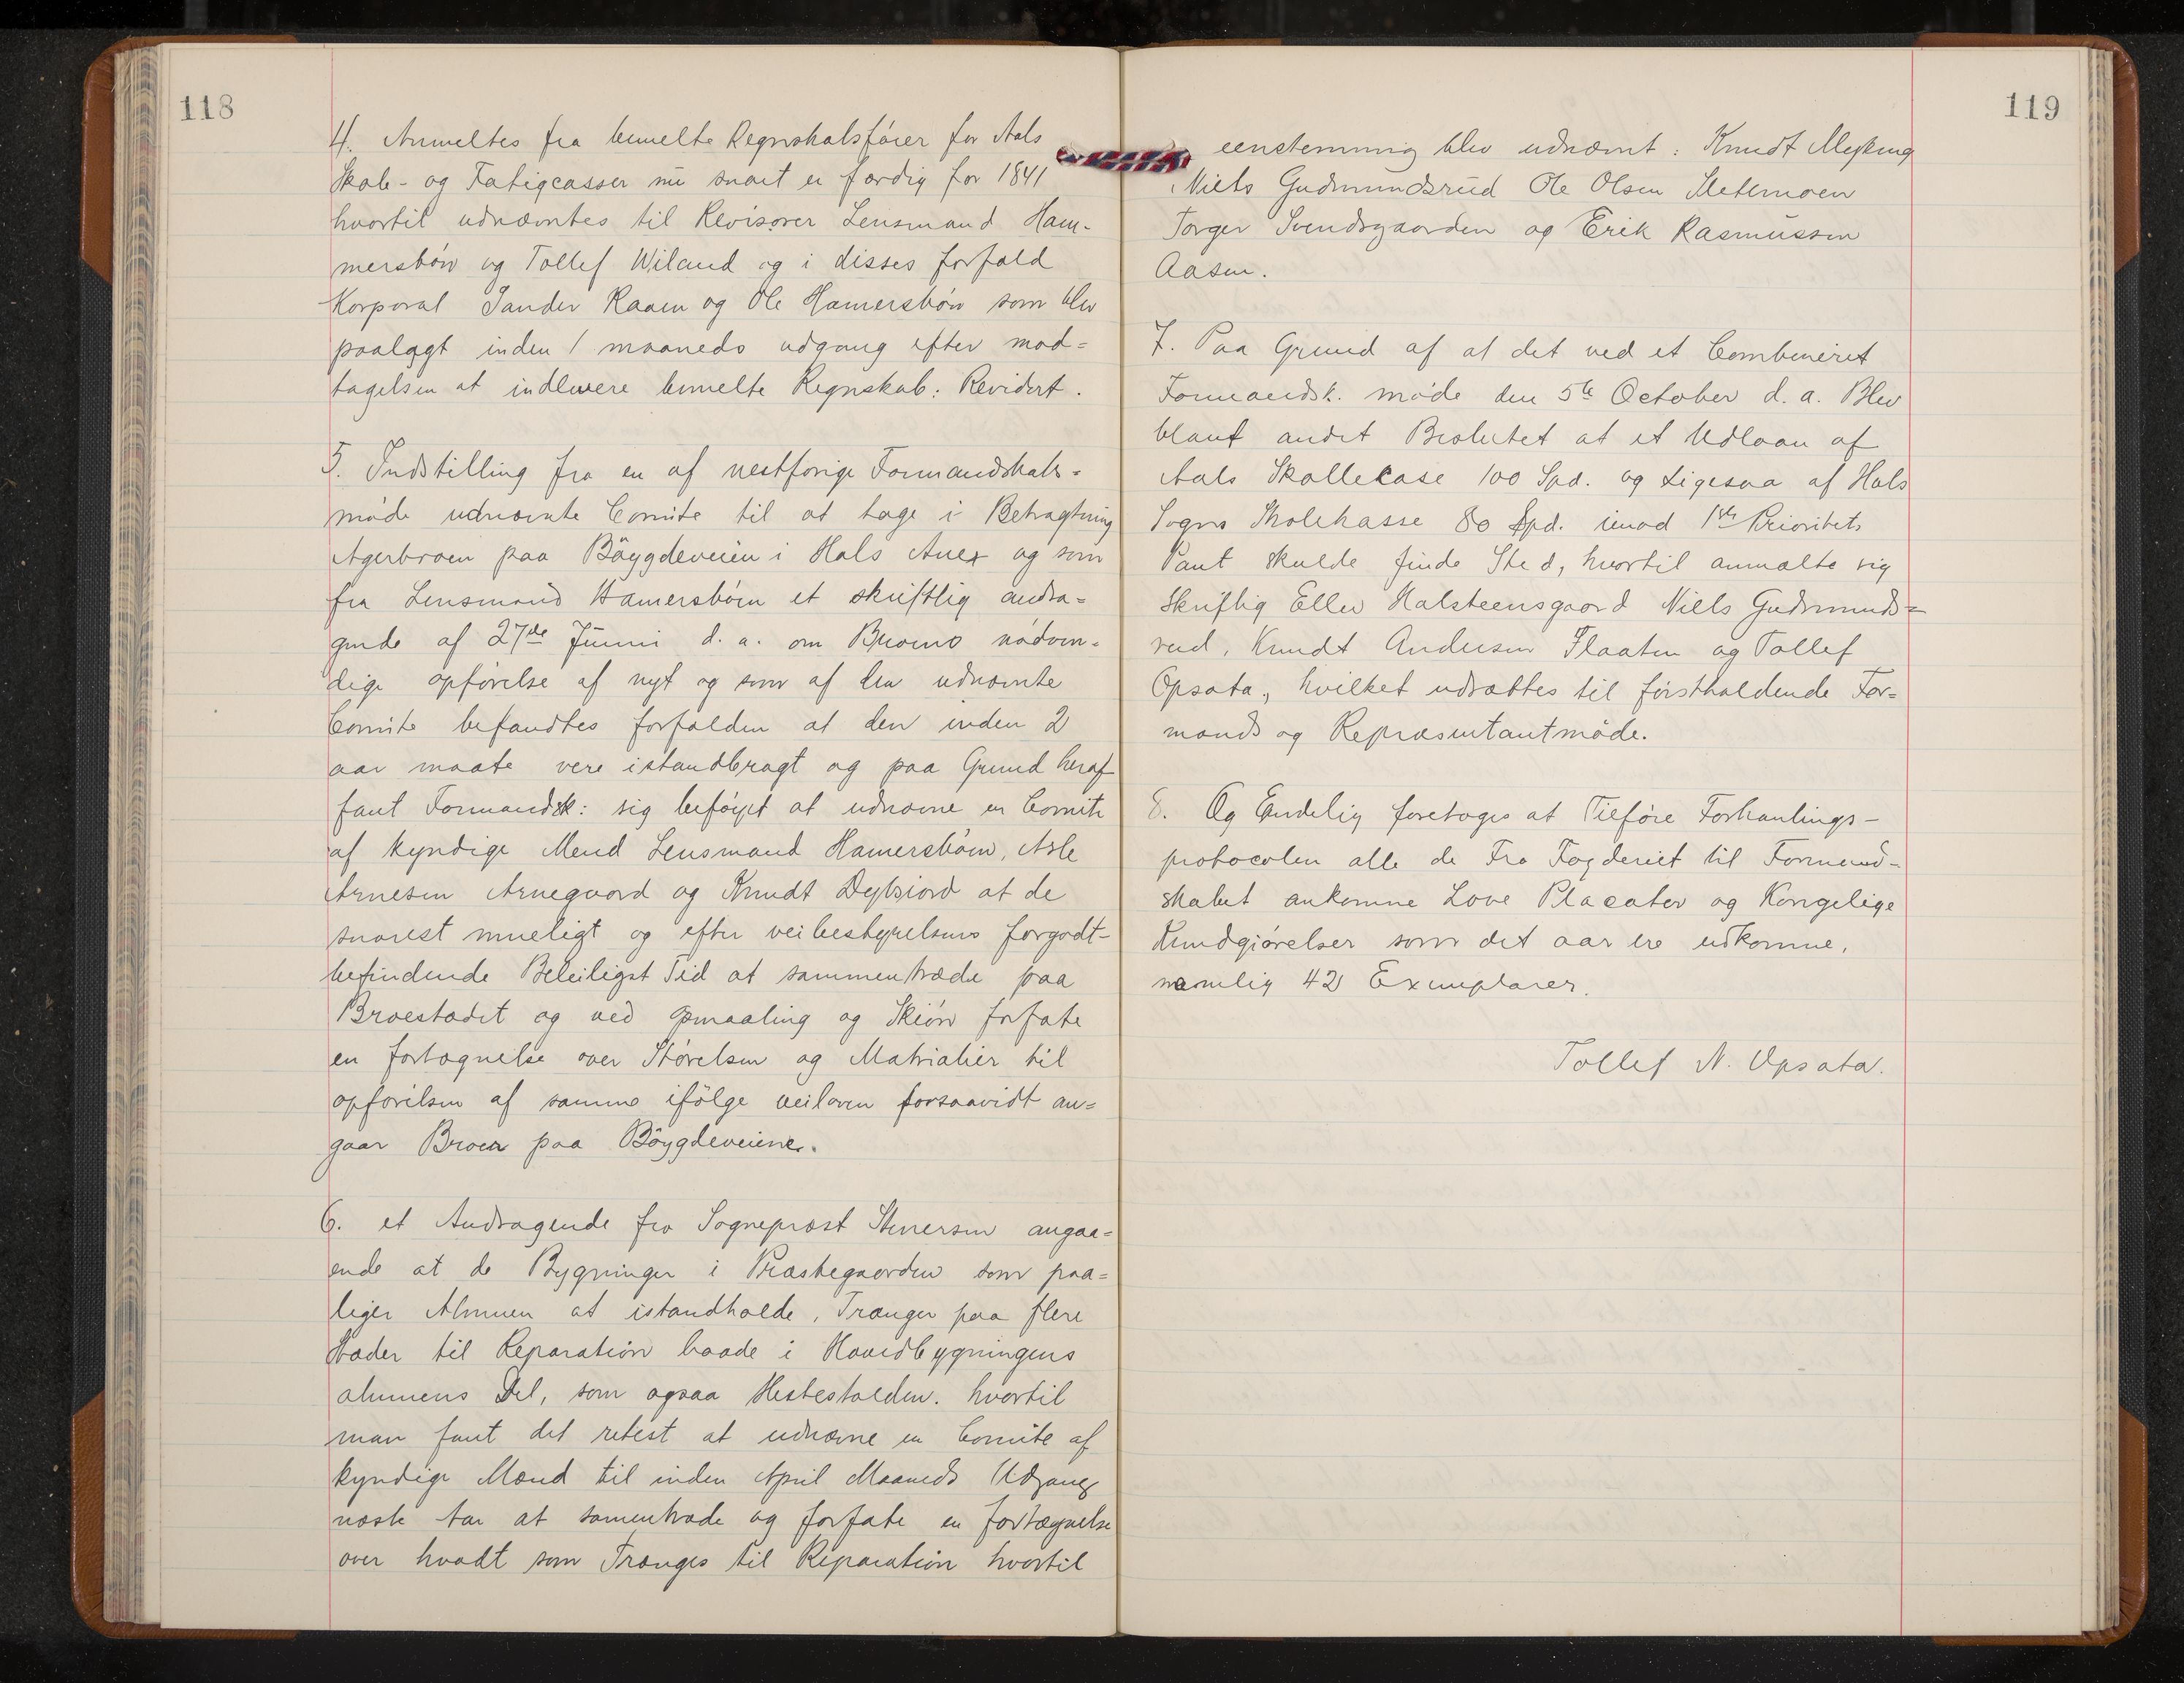 118
4. Anmeltes fra bemelte Regnskabsfører for Aals
Skole- og Fatigcasser nu snart er færdig for 1841
hvortil udnævntes til Revisorer Lensmand Ham-
mersbøn og Tollef Wiland og i disses forfald
Korporal Sander Raaen og Ole Hamersbøn som blev
paalagt inden 1 maaneds udgang efter mod=
tagelsen at indlevere bemelte Regnskab: Revidert.
5. Indstilling fra en af nestforige Formandskabs=
møde udnævnte Comite til at tage i Betragtning
Agerbroen paa Bøygdeveien i Hols Anex og som
fra Lensmand Hamersbøen et skriftlig andra=
gende af 27de Junni d. a. om Broens nødven=
dige opførelse af nyt og som af den udnævnte
Comite befandtes forfalden at den inden 2
aar maate vere istandbragt og paa Grund heraf
fant Formandsk: sig beføyet at udnævne en Comite
af kyndige Mend Lensmand Hamersbøen, Asle
Arnesen Arnegaard og Knudt Dybsiord at de
snarest mueligt og efter veibestyrelsens forgodt-
befindende Beleiligst Tid at sammentræde paa
Broestædet og ved opmaaling og Skiøn forfate
en fortegnelse over Størelsen og Matrialier til
opførelsen af samme ifølge veiloven forsaavidt an=
gaar Broer paa Bøygdeveiene.
6. et Andragende fra Sognepræst Stenersen angaa=
ende at de Bygninger i Præstegaarden som paa=
liger Almuen at istandholde, Trænger paa flere
Stæder til Reparation baade i Hovedbygningens
almuens Del, som ogsaa Hestestalden. hvortil
man fant det retest at udnævne en Comite af
kyndige Mænd til inden April Maaneds Udgang
næste Aar at samentræde og forfate en fortægnelse
over hvadt som Trænges til Reparation hvortil
119
eenstemmig blev udnæmt: Knudt
Niels Gudmundsrud Ole Olsen Sletemoen
Torger Svendsgaarden og Erik Rasmussen
Aasen.
7. Paa Grund af at det ved et Combineret
Formandsk. møde den 5te October d. a. Blev
blant andet Besluttet at et Udlaan af
Aals Skollekase 100 Spd. og Ligesaa af Hols
Sogns Skolekasse 80 Spd. imod 1ste Prioritets
Pant skulde finde Sted, hvortil anmælte sig
skriftlig Ellev Halsteensgaard Niels Gudmunds=
rud, Knudt Andersen Flaaten og Tollef
Opsata., hvilket udsættes til førstholdende For=
mands og Repræsentantmøde.
8. Og Endelig foretoges at Tilføre Forhanlings-
protocolen alle de Fra Fogderiet til Formand-
skabet ankomne Love Placater og Kongelige
Kundgiørelser som det aar ere udkomne,
nemlig 42 Exemplarer.
Tollef N. Opsata.